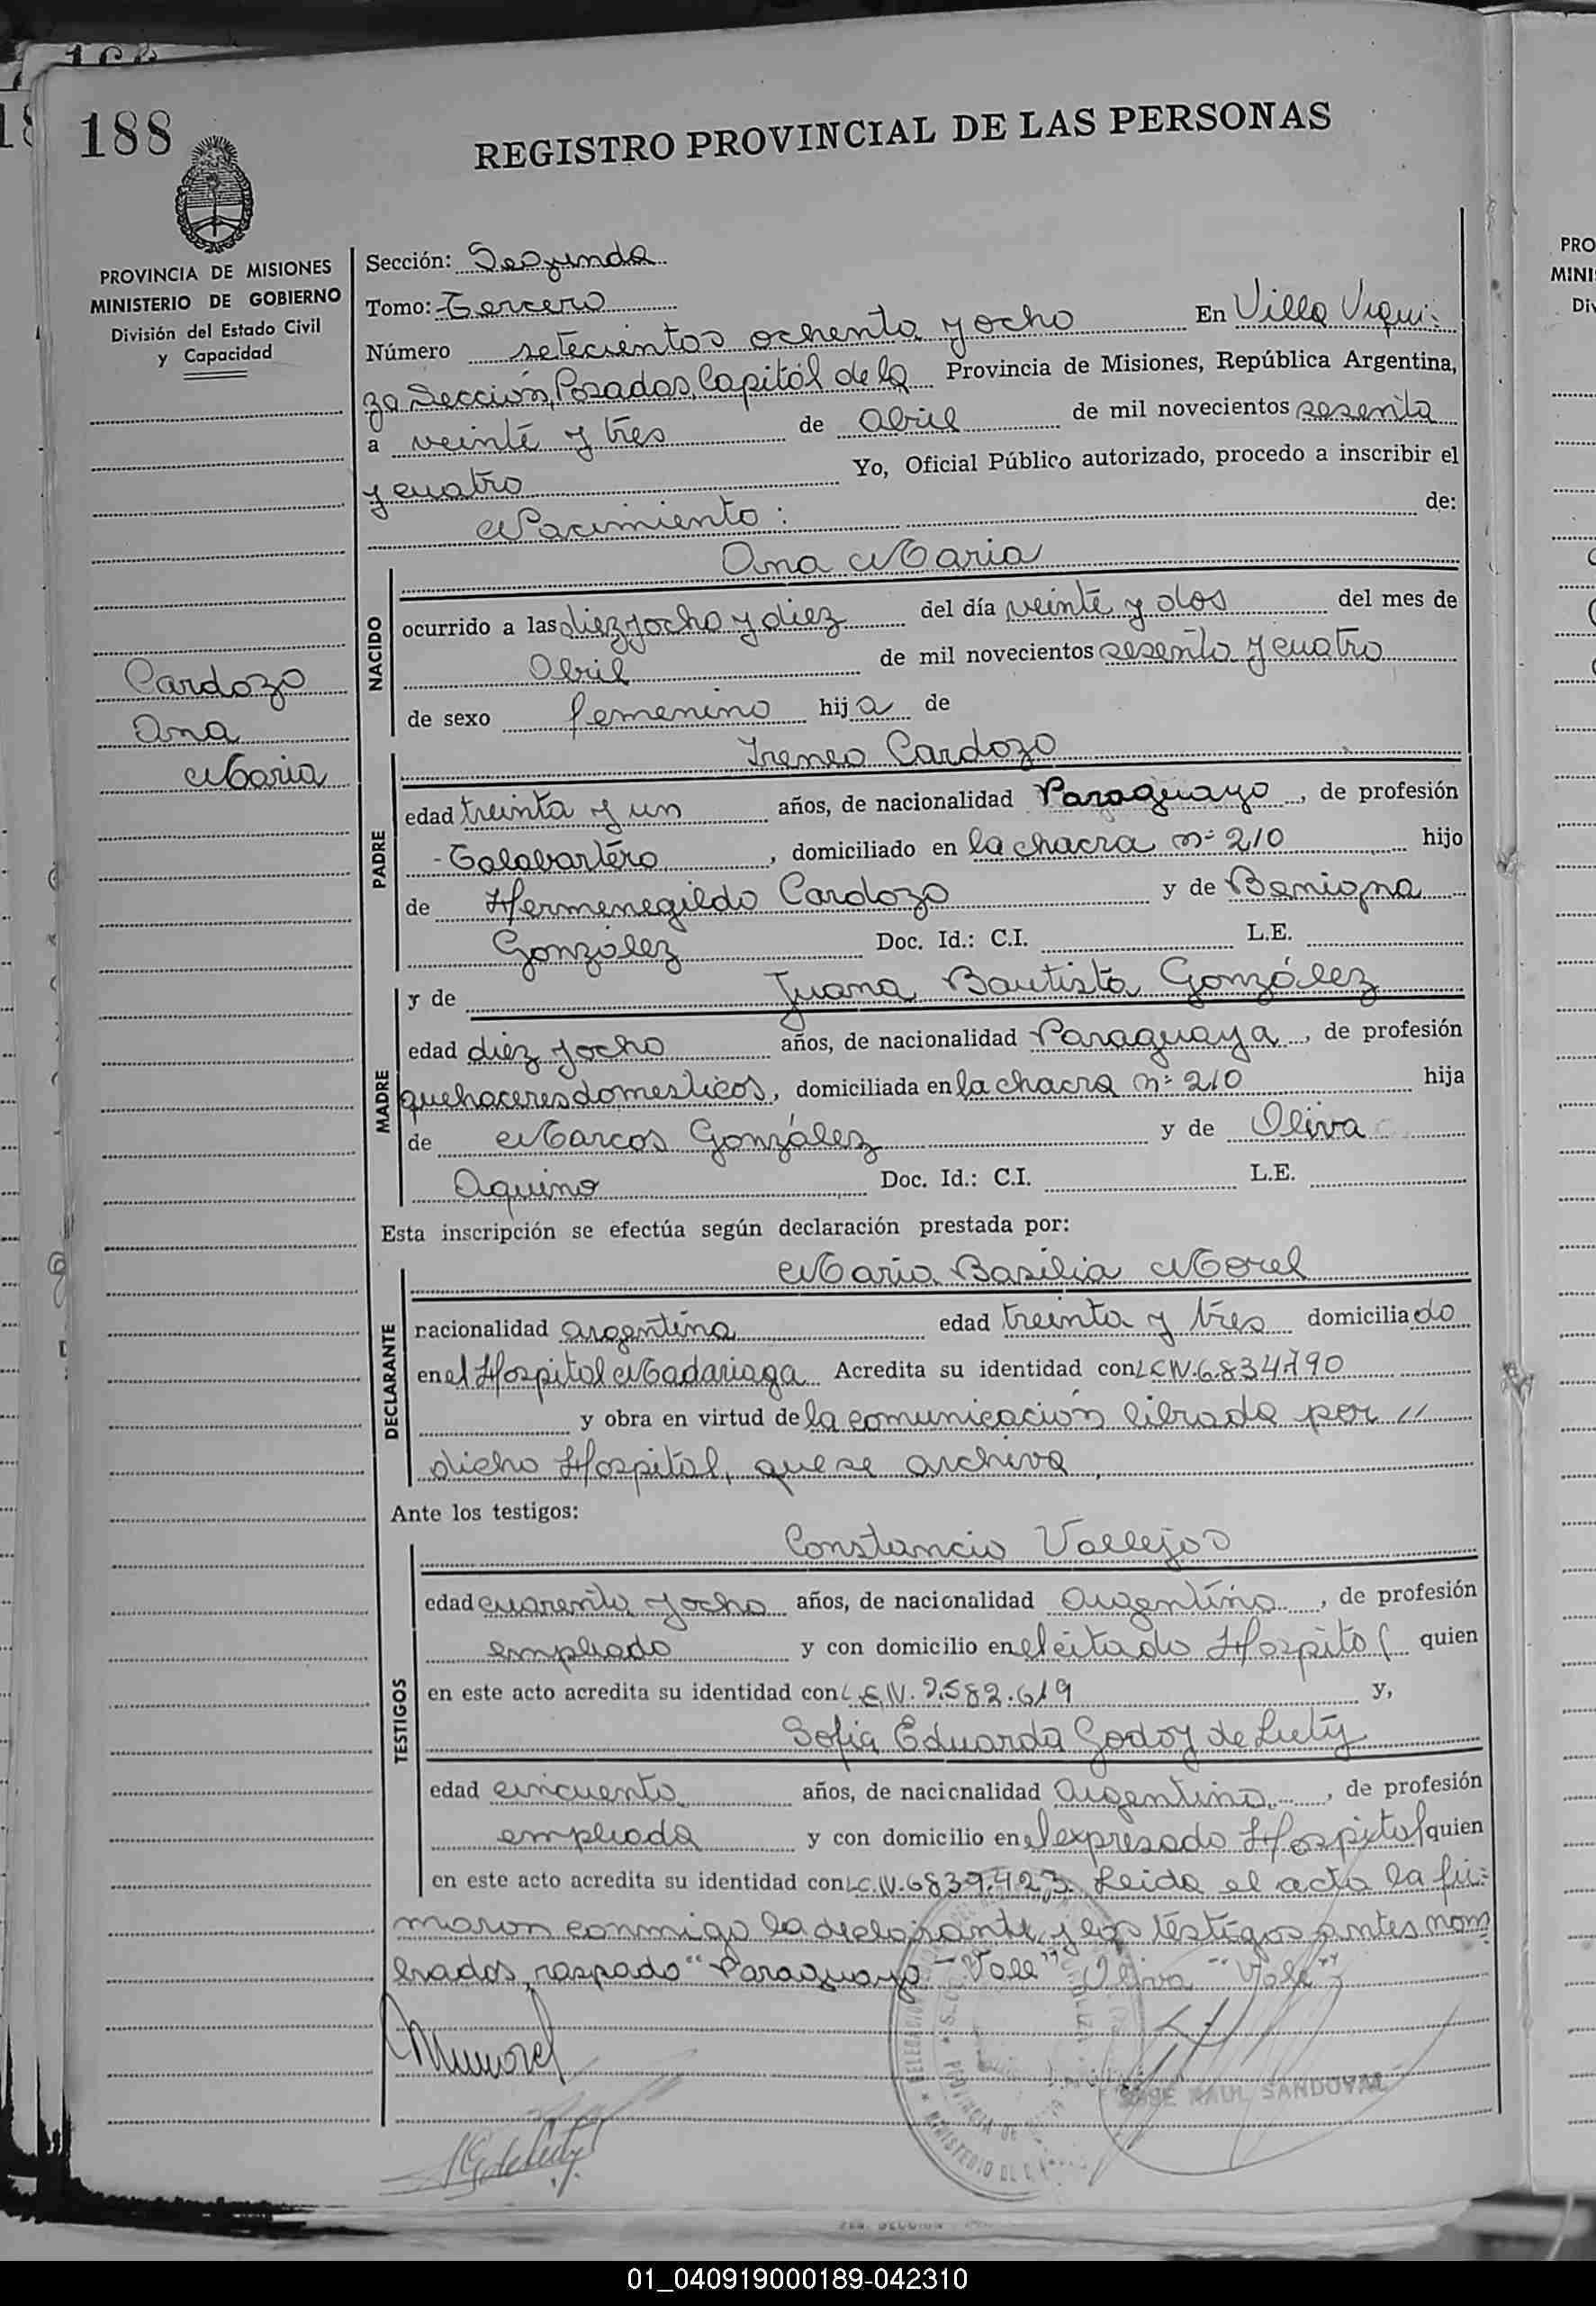 188
REGISTRO PROVINCIAL DE LAS PERSONAS
PROVINCIA DE MISIONES
MINISTERIO DE GOBIERNO
División del Estado Civil
y Capacidad
Cardozo
Ana
Maria
Sección: Segunda
Tomo: Tercero
Número setecientos ochenta y ocho En Villa Urqui-
za Sección, Posadas, Capital de la Provincia de Misiones, República Argentina,
a veinte y tres de Abril de mil novecientos sesenta
y cuatro Yo, Oficial Público autorizado, procedo a inscribir el
Nacimiento: de:
NACIDO
Ana Maria
ocurrido a las diez y ocho y diez del día veinte y dos del mes de
Abril de mil novecientos sesenta y cuatro
de sexo femenino hija de
PADRE
Ireneo Cardozo
edad treinta y un años, de nacionalidad Paraguayo, de profesión
Talabartero, domiciliado en la chacra nº 210 hijo
de Hermenegildo Cardozo y de Benigna
González Doc. Id.: C.I. L.E.
MADRE
y de Juana Bautista González
edad diez y ocho años, de nacionalidad Paraguaya, de profesión
quehaceres domesticos, domiciliada en la chacra nº 210 hija
de Marcos González y de Oliva
Aquino Doc. Id.: C.I. L.E.
Esta inscripción se efectúa según declaración prestada por:
DECLARANTE
Maria Basilia Morel
nacionalidad argentina edad treinta y tres domiciliado
en el Hospital Madariaga Acredita su identidad con L.C.N. 6.834.790
y obra en virtud de la comunicación librada por //
dicho Hospital, que se archiva
Ante los testigos:
TESTIGOS
Constancio Vallejos
edad cuarenta y ocho años, de nacionalidad Argentino, de profesión
empleado y con domicilio en el citado Hospital quien
en este acto acredita su identidad con L.E.N. 7.582.619 y,
Sofia Eduarda Godoy de
edad cincuenta años, de nacionalidad Argentina, de profesión
empleada y con domicilio en el expresado Hospital quien
en este acto acredita su identidad con L.C.N. 6839.423. Leida el acta la fir-
maron conmigo la declarante y los testigos antes nom
brados, raspado "Paraguayo" Vale" Oliva "Vale"
JOSE RAUL SANDOVAL
01_040919000189-042310